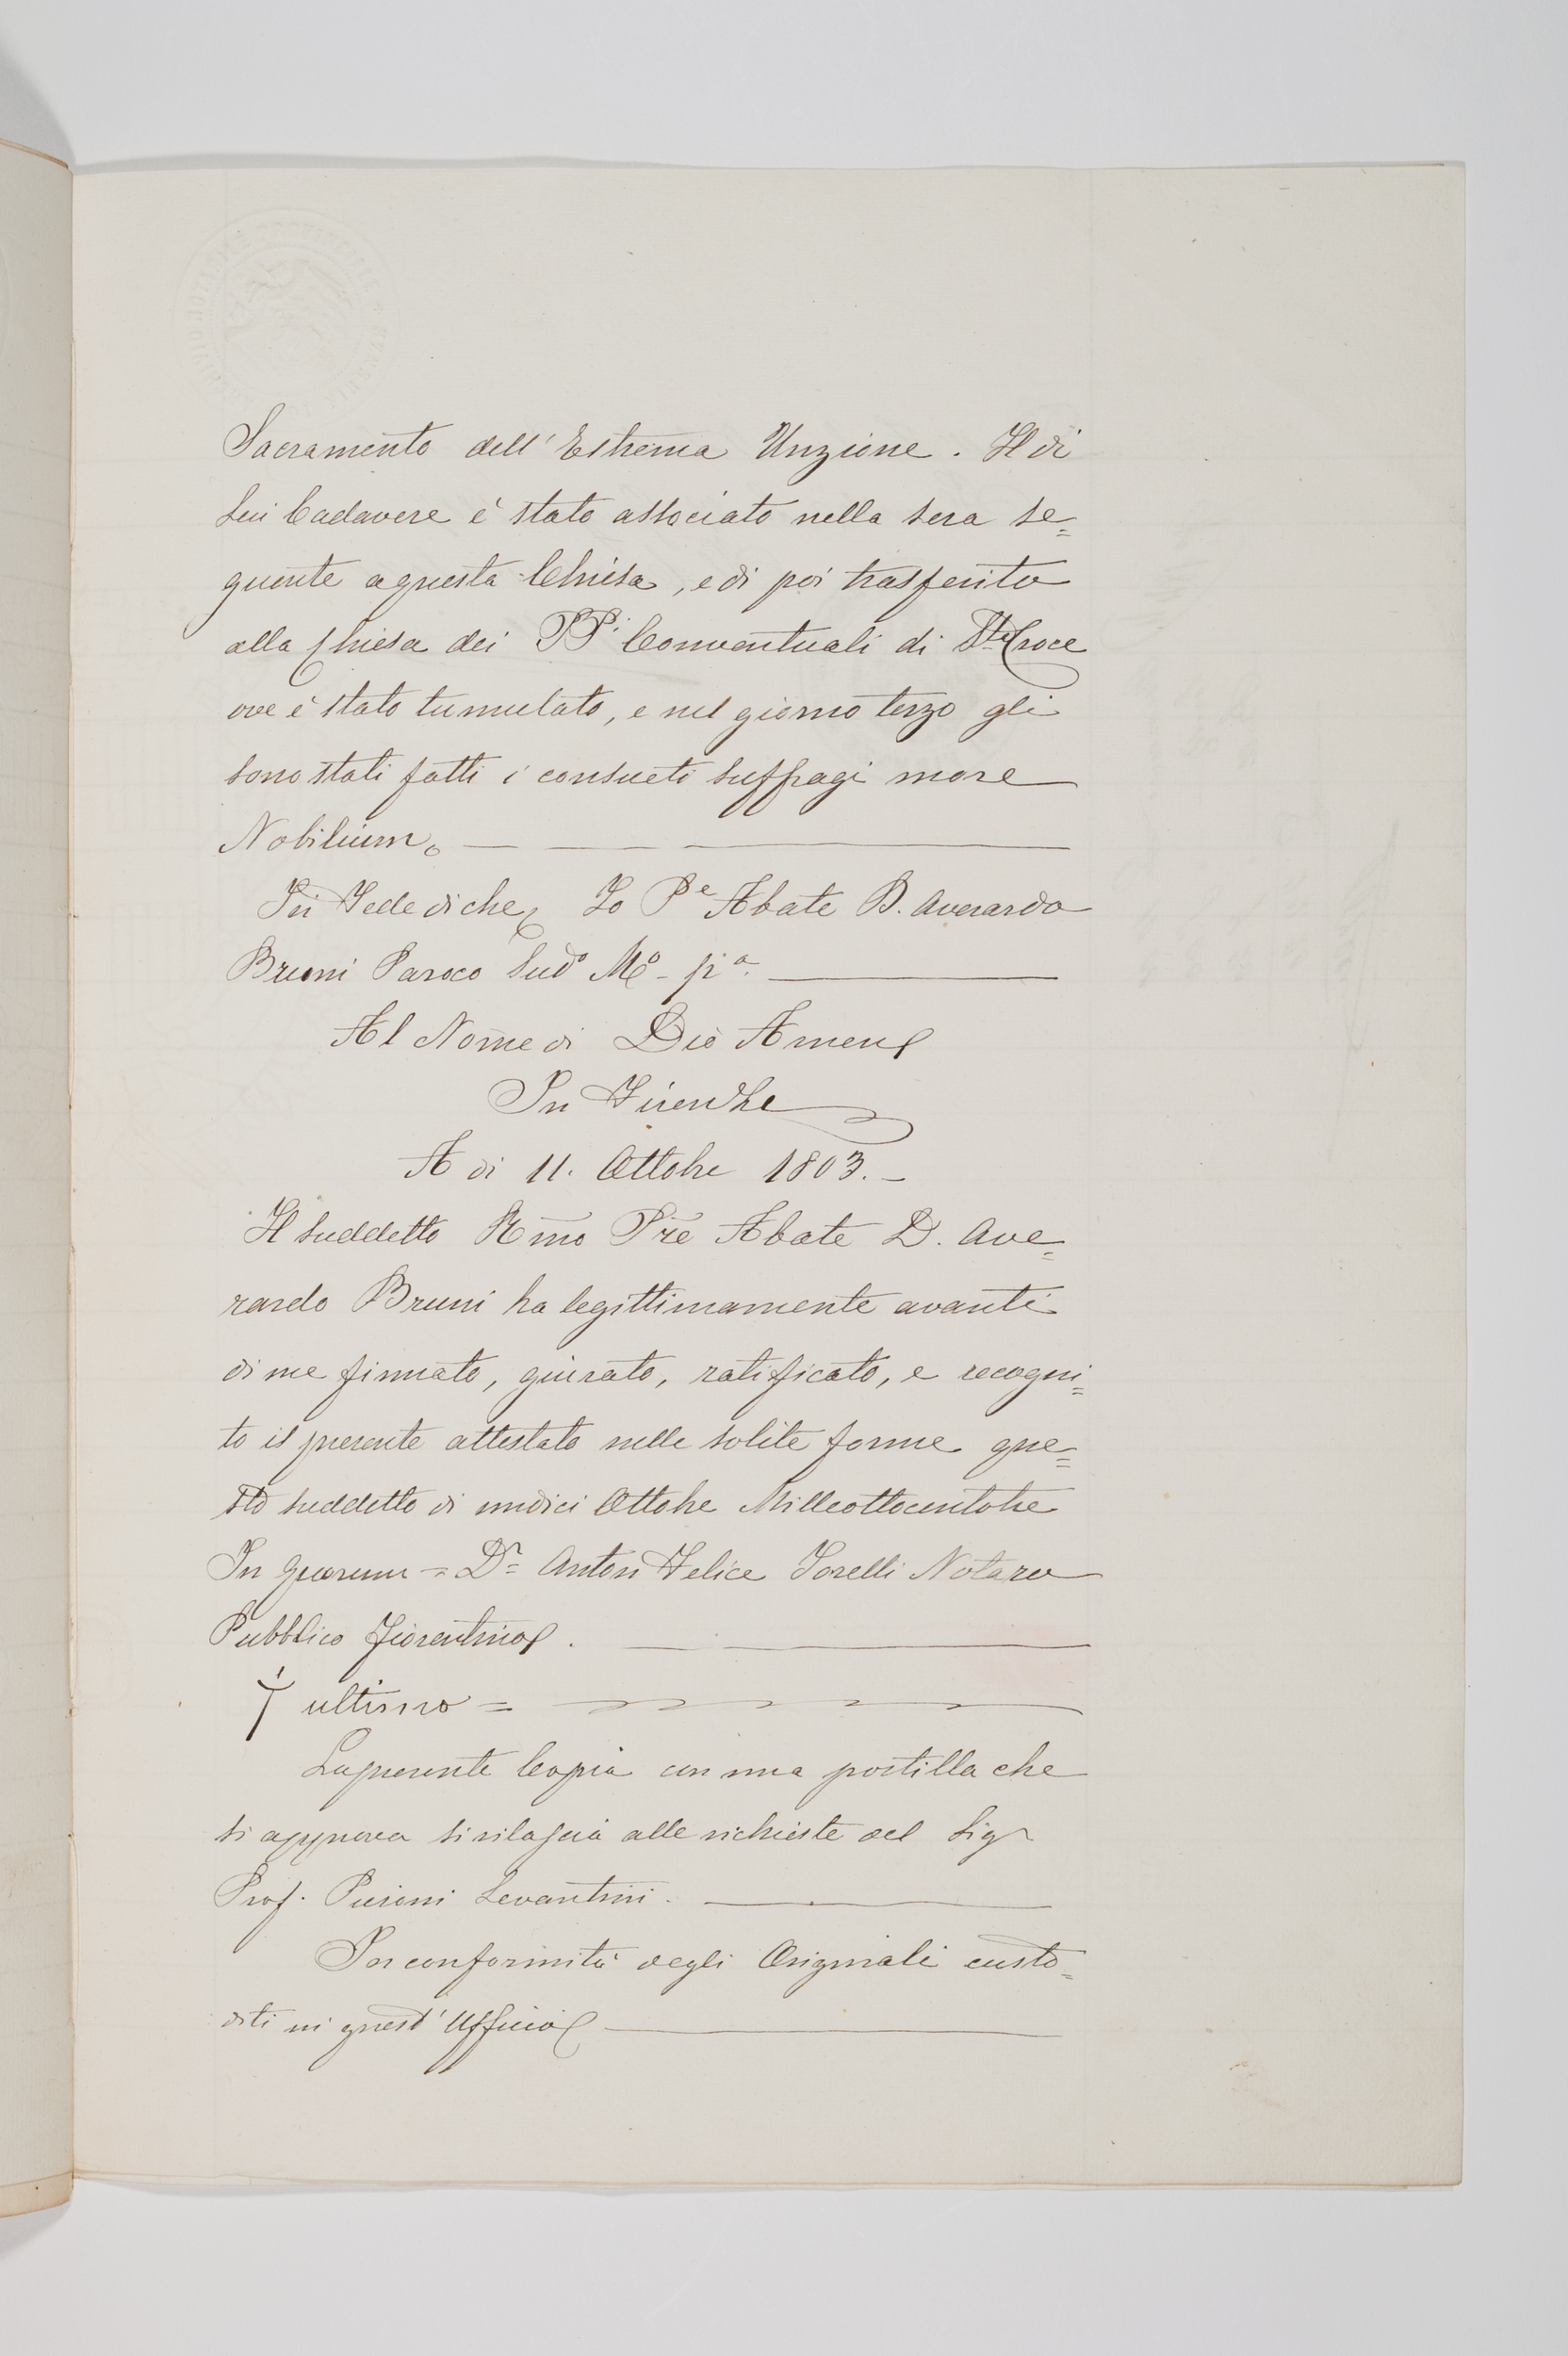 Sacramento dell' Estrema Unzione. Il di
Lui Cadavere è stato associato nella sera se=
guente a questa Chiesa, e di poi trasferito
alla Chiesa dei PP.i Conventuali di Sta Croce
ove è stato tumulato, e nel giorno terzo gli
sono stati fatti i consueti suffragi more
Nobilium.
In Fede di che Io Pe Abate D. Averardo
Bruni Paroco Sudo Mo- pa.
Al Nome di Dio Amen
In Firenze
A di 11. Ottobre 1803.-
Il suddetto Rmo Pre Abate D. Ave=
rardo Bruni ha legittimamente avanti
di me firmato, giurato, ratificato, e recogni=
to il presente attestato nelle solite forme que=
sto suddetto di undici Ottobre Milleottocentotre
In quorum = Dr = Anton Felice Torelli Notaro
Pubblico Fiorentino.
† ultimo =
La presente Copia con una postilla che
si approva si rilascia alle richieste del Sigr
Prof. Levantini.
In conformità degli Originali custo=
diti in quest' Ufficio